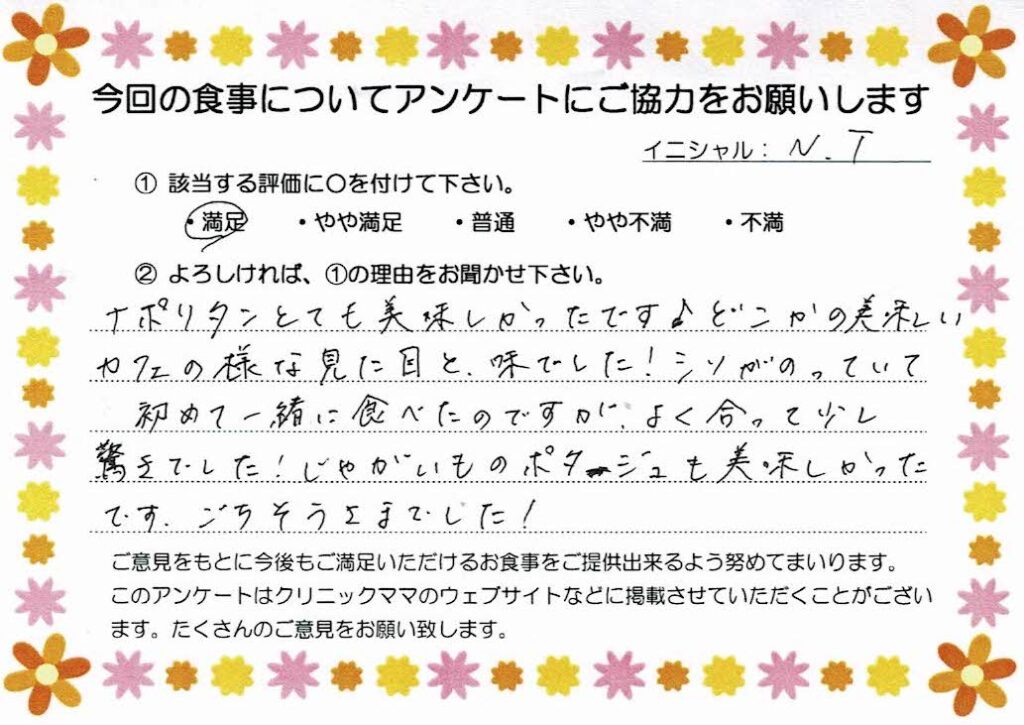 今回の食事についてアンケートにご協力をお願いします
イニシャル： N.T
① 該当する評価に〇を付けて下さい。
・満足 ・やや満足 ・普通 ・やや不満 ・不満
② よろしければ、①の理由をお聞かせ下さい。
ナポリタンとても美味しかったです♪どこかの美味しい
カフェの様な見た目と、味でした！シソがのっていて
初めて一緒に食べたのですが、よく合って少し
驚きでした！じゃがいものポタージュも美味しかった
です、ごちそうさまでした！
ご意見をもとに今後もご満足いただけるお食事をご提供出来るよう努めてまいります。
このアンケートはクリニックママのウェブサイトなどに掲載させていただくことがござい
ます。たくさんのご意見をお願い致します。